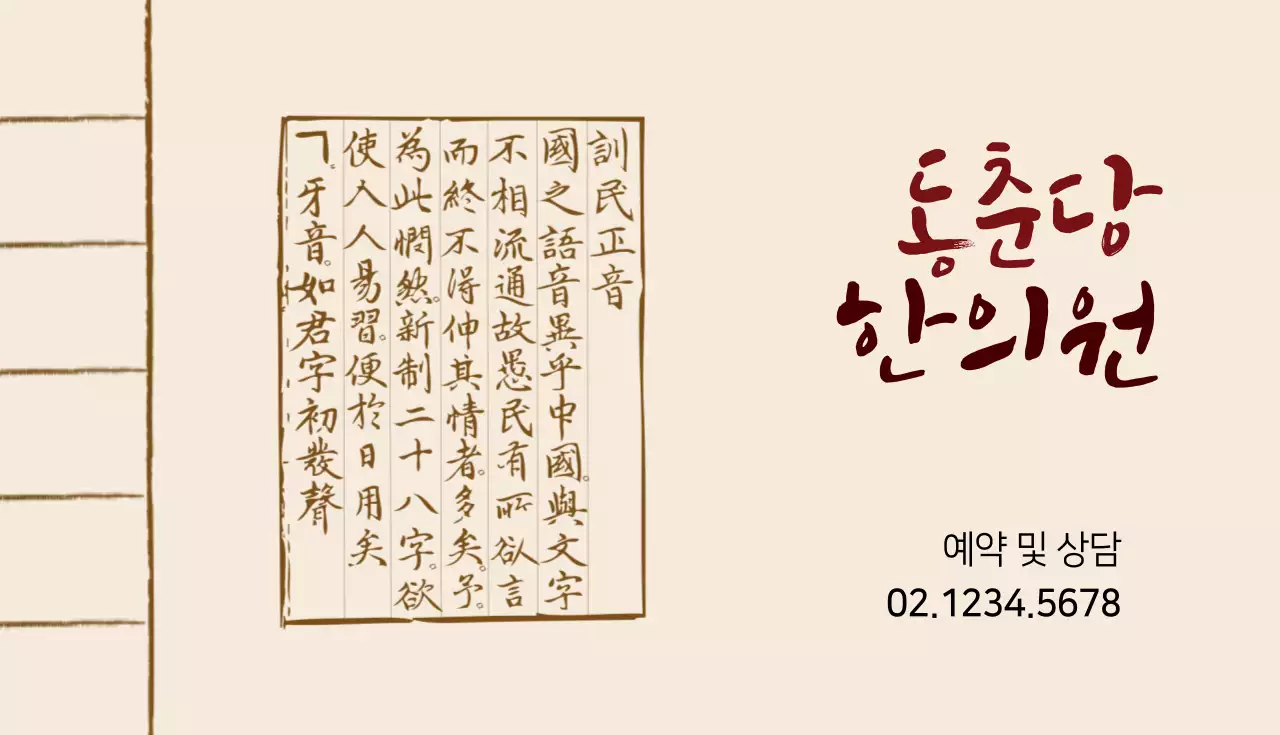 訓民正音
國之語音異乎中國。與文字
不相流通故愚民有所欲言
而終不得伸其情者。多矣。予。
為此憫然。新制二十八字。欲
使人人易習。便於日用矣
ㄱ。牙音。如君字初發聲
동춘당
한의원
예약 및 상담
02.1234.5678